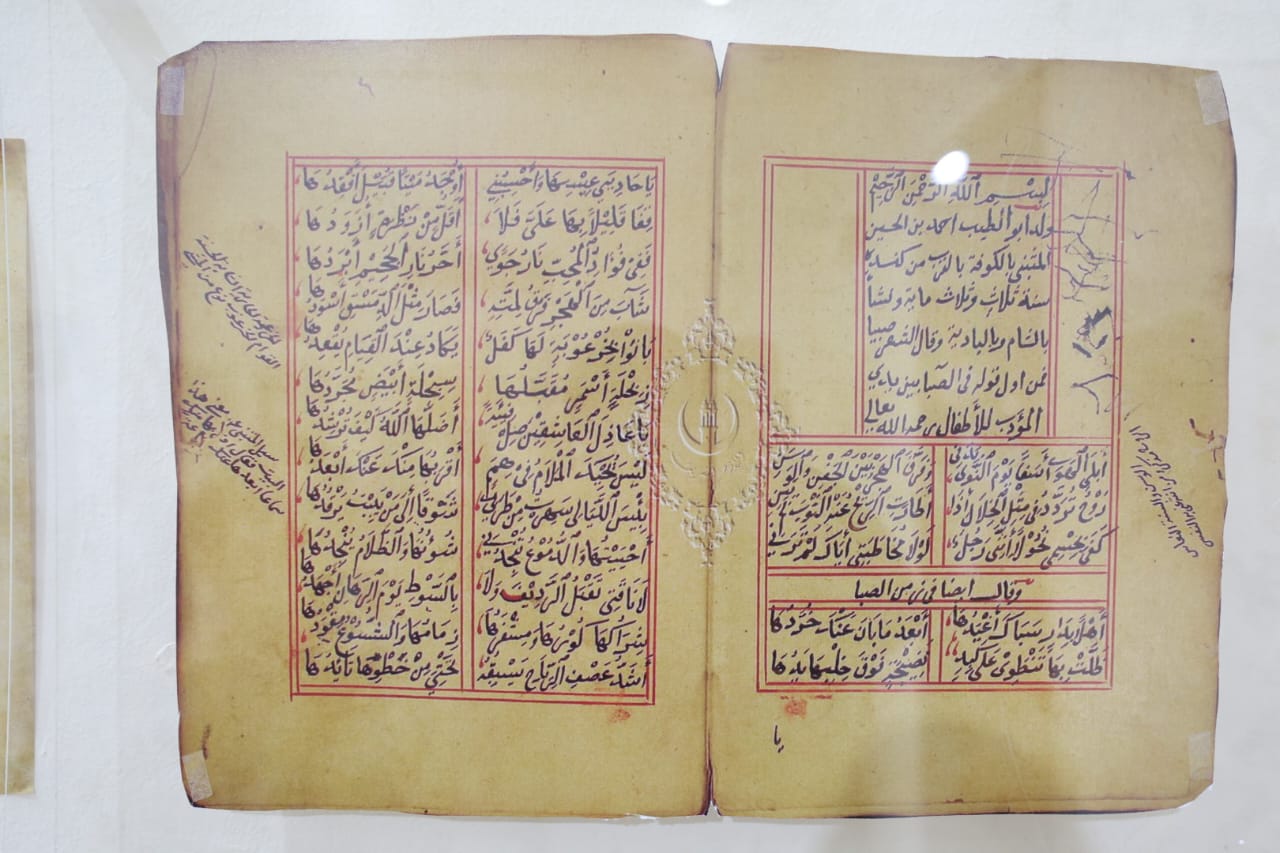 بسم الله الرحمن الرحيم
ولد أبو الطيب احمد بن الحسين
المتنبي بالكوفة بالقرب من كندة
سنة ثلاث وثلاث ماية ونشا
بالشام وبالبادية وقال الشعر صبيا
فمن اول قوله في الصبا بين يدي
المؤدب للأطفال رحمه الله تعالى
أَبلى الهوى أسفًا يوم النوى بدني وفرق الهجر بين الجفن والوسن
روح تردد في مثل الخلال إذا أطارت الريح عنه الثوب لم يبن
كفى بجسمي نحولا أنني رجل لولا مخاطبتي أياك لم ترني
وقال ايضا في زمن الصبا
أهلا بدار سباك أغيدها أبعد ما بان عنك خردها
ظلت بها تنطوي على كبد نضيجة فوق خلبها يدها
يا
يا حاديي عيسها وأحسبني أوجد ميتا قبيل أفقدها
قفا قليلا بها علي فلا أقل من نظرة أزودها
ففي فؤاد المحب نار جوى أحر نار الجحيم أبردها
شاب من الهجر فرق لمته فصار مثل الدمقس أسودها
بانوا بخرعوبة لها كفل يكاد عند القيام يقعدها
ربحلة أسمر مقبلها سبحلة أبيض مجردها
يا عاذل العاشقين دع فئة أضلها الله كيف ترشدها
ليس يحيك الملام في همم أقربها منك عنك أبعدها
بئس الليالي سهرت من طربي شوقا إلى من يبيت يرقدها
أحييتها والدموع تنجدني شؤنها والظلام ينجدها
لا ناقتي تقبل الرديف ولا بالسوط يوم الرهان أجهدها
شراكها كورها ومشفرها زمامها والشسوع مقودها
أشد عصف الرياح يسبقه تحتي من خطوها تأيدها